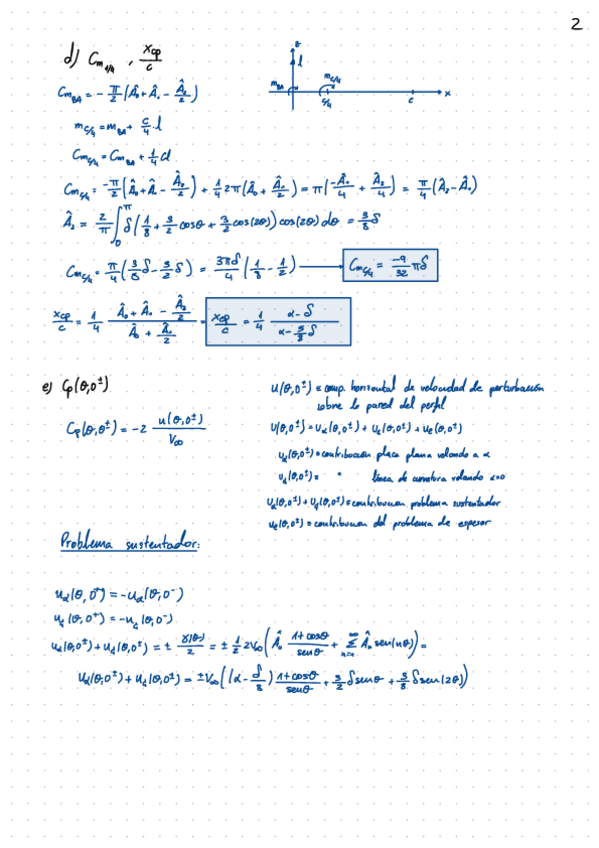 2
d) Cm_c/4 , x_cp/c
z
l
m_BA m_c/4
c/4 c x
Cm_BA = - π/2 (Â₀ + Â₁ - Â₂/2)
m_c/4 = m_BA + c/4 · l
Cm_c/4 = Cm_BA + 1/4 cl
Cm_c/4 = -π/2 (Â₀ + Â₁ - Â₂/2) + 1/4 2π (Â₀ + Â₁/2) = π (-Â₁/4 + Â₂/4) = π/4 (Â₂ - Â₁)
Â₂ = 2/π ∫₀^π δ (1/8 + 3/2 cosθ + 3/8 cos(2θ)) cos(2θ) dθ = 3/8 δ
Cm_c/4 = π/4 (3/8 δ - 3/2 δ) = 3πδ/4 (1/8 - 1/2) → Cm_c/4 = -9/32 πδ
x_cp/c = 1/4 (Â₀ + Â₁ - Â₂/2)/(Â₀ + Â₁/2) = x_cp/c = 1/4 (α - δ)/(α - 5/8 δ)
e) Cp(θ,0±)
Cp(θ,0±) = -2 u(θ,0±)/V∞
u(θ,0±) = comp. horizontal de velocidad de perturbación
sobre la pared del perfil
U(θ,0±) = uα(θ,0±) + u_d(θ,0±) + u_e(θ,0±)
uα(θ,0±) = contribución placa plana volando a α
u_d(θ,0±) = " línea de curvatura volando α=0
uα(θ,0±) + u_d(θ,0±) = contribucion problema sustentador
u_e(θ,0±) = contribucion del problema de espesor
Problema sustentador:
uα(θ,0⁺) = -uα(θ,0⁻)
u_d(θ,0⁺) = -u_d(θ,0⁻)
uα(θ,0±) + u_d(θ,0±) = ± γ(θ)/2 = ± 1/2 2V∞ (Â₀ (1+cosθ)/senθ + Σ Âₙ sen(nθ)) =
uα(θ,0±) + u_d(θ,0±) = ±V∞ ((α - δ/8) (1+cosθ)/senθ + 3/2 δ senθ + 3/8 δ sen(2θ))